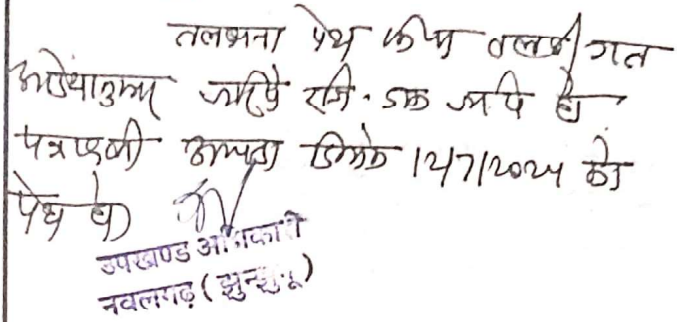 तलबाना पेश किया तलबी गत
आदेशानुसार जरिये रजि. डाक जारी हो
पत्रावली वास्ते दिनांक 12/7/2024 को
पेश हो
उपखण्ड अधिकारी
नवलगढ़ (झुन्झुनू)